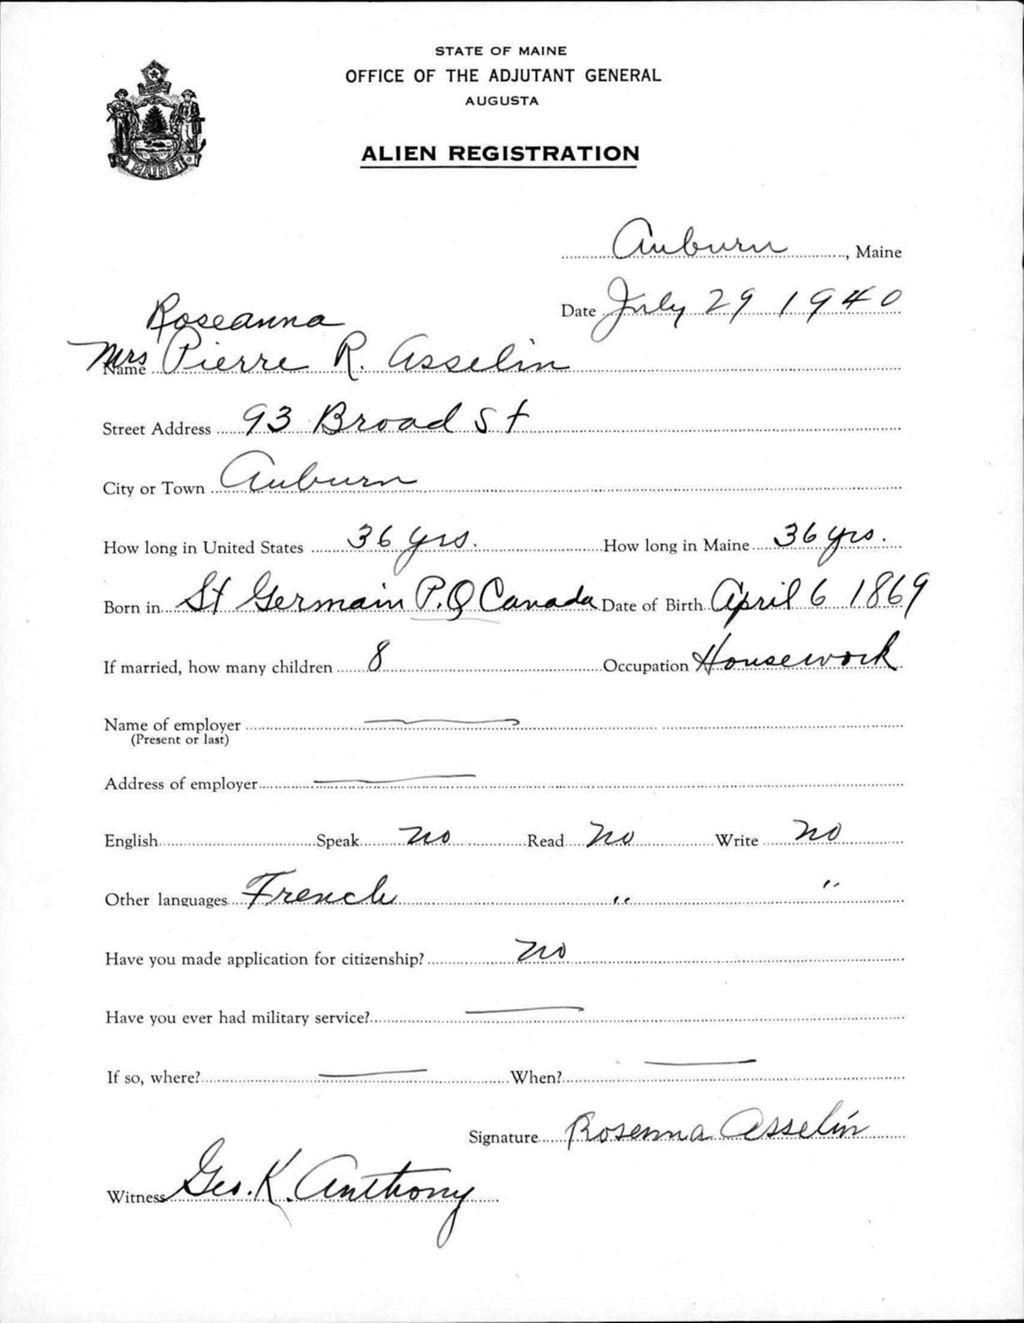 STATE OF MAINE
OFFICE OF THE ADJUTANT GENERAL
AUGUSTA
ALIEN REGISTRATION
MAINE
Auburn, Maine
Date July 29 1940
Roseanna
Mrs
Name Pierre R. Asselin
Street Address 93 Broad St
City or Town Auburn
How long in United States 36 yrs. How long in Maine 36 yrs.
Born in St Germain P.Q Canada Date of Birth April 6 1869
If married, how many children 8 Occupation Housework
Name of employer
(Present or last)
Address of employer
English Speak no Read no Write no
Other languages French " "
Have you made application for citizenship? no
Have you ever had military service?
If so, where? When?
Signature Rosenna Asselin
Witness Geo. K. Anthony